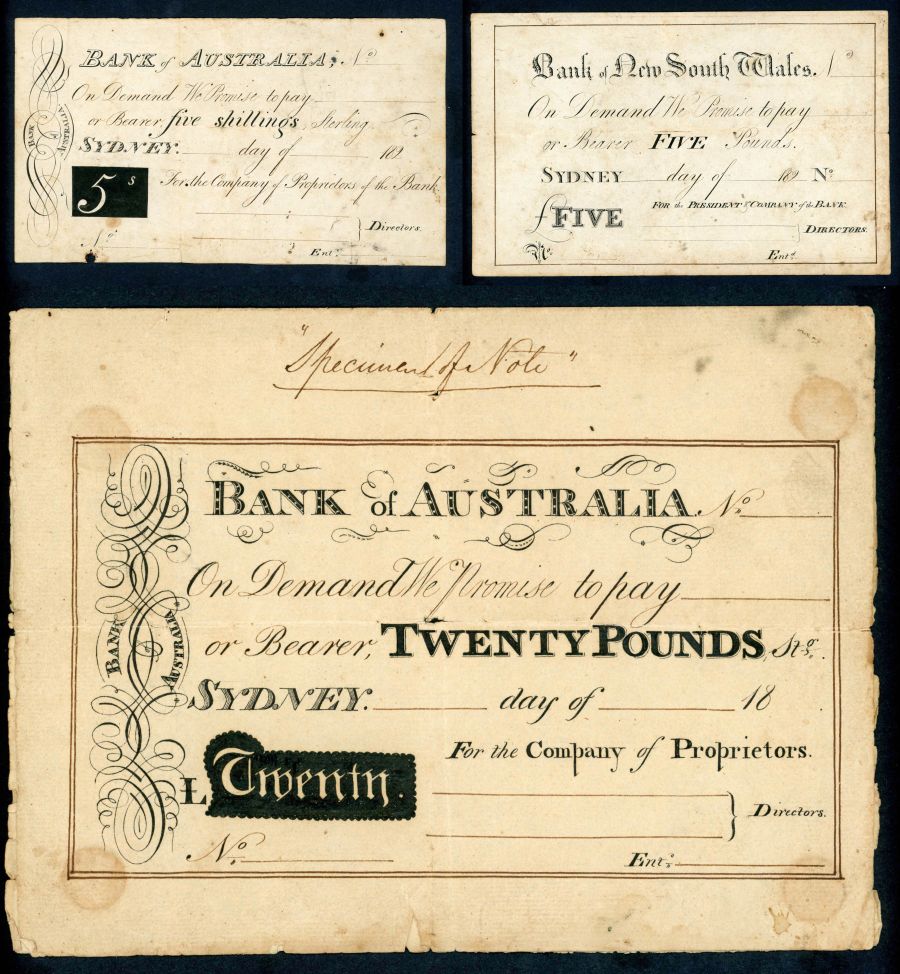 BANK of AUSTRALIA, No
On Demand We Promise to pay
or Bearer five shillings, Sterling
SYDNEY. day of 182
5s
For the Company of Proprietors of the Bank
Directors.
No
Entd.
BANK of AUSTRALIA
Bank of New South Wales. No
On Demand We Promise to pay
or Bearer FIVE Pounds.
SYDNEY day of 182 No
£FIVE
FOR the PRESIDENT & COMPANY of the BANK.
DIRECTORS.
No.
Entd.
"Specimen of Note"
BANK of AUSTRALIA. No.
On Demand We Promise to pay
or Bearer, TWENTY POUNDS, Stg.
SYDNEY. day of 18
For the Company of Proprietors.
£ Twenty.
Directors.
No.
Entd.
BANK of AUSTRALIA